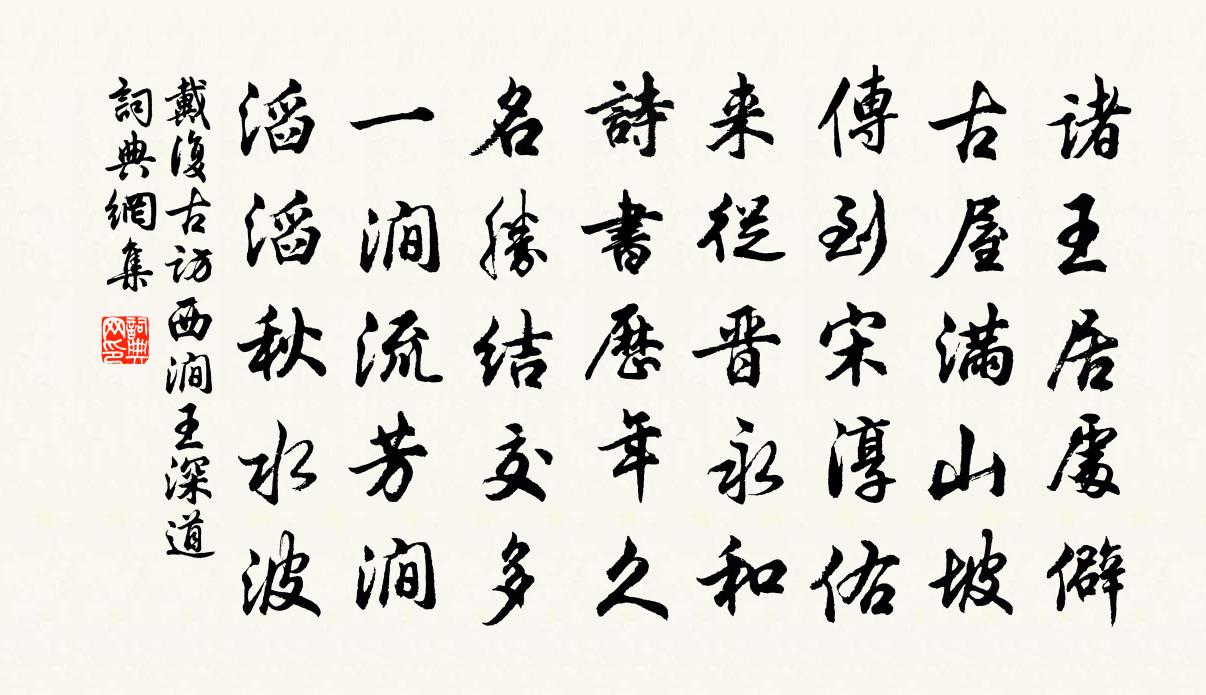 诸王居處僻
古屋滿山坡
傳到宋淳佑
来從晋永和
詩書歷年久
名勝結交多
一澗流芳澗
滔滔秋水波
戴復古訪西澗王深道
詞典網集
詞典网印